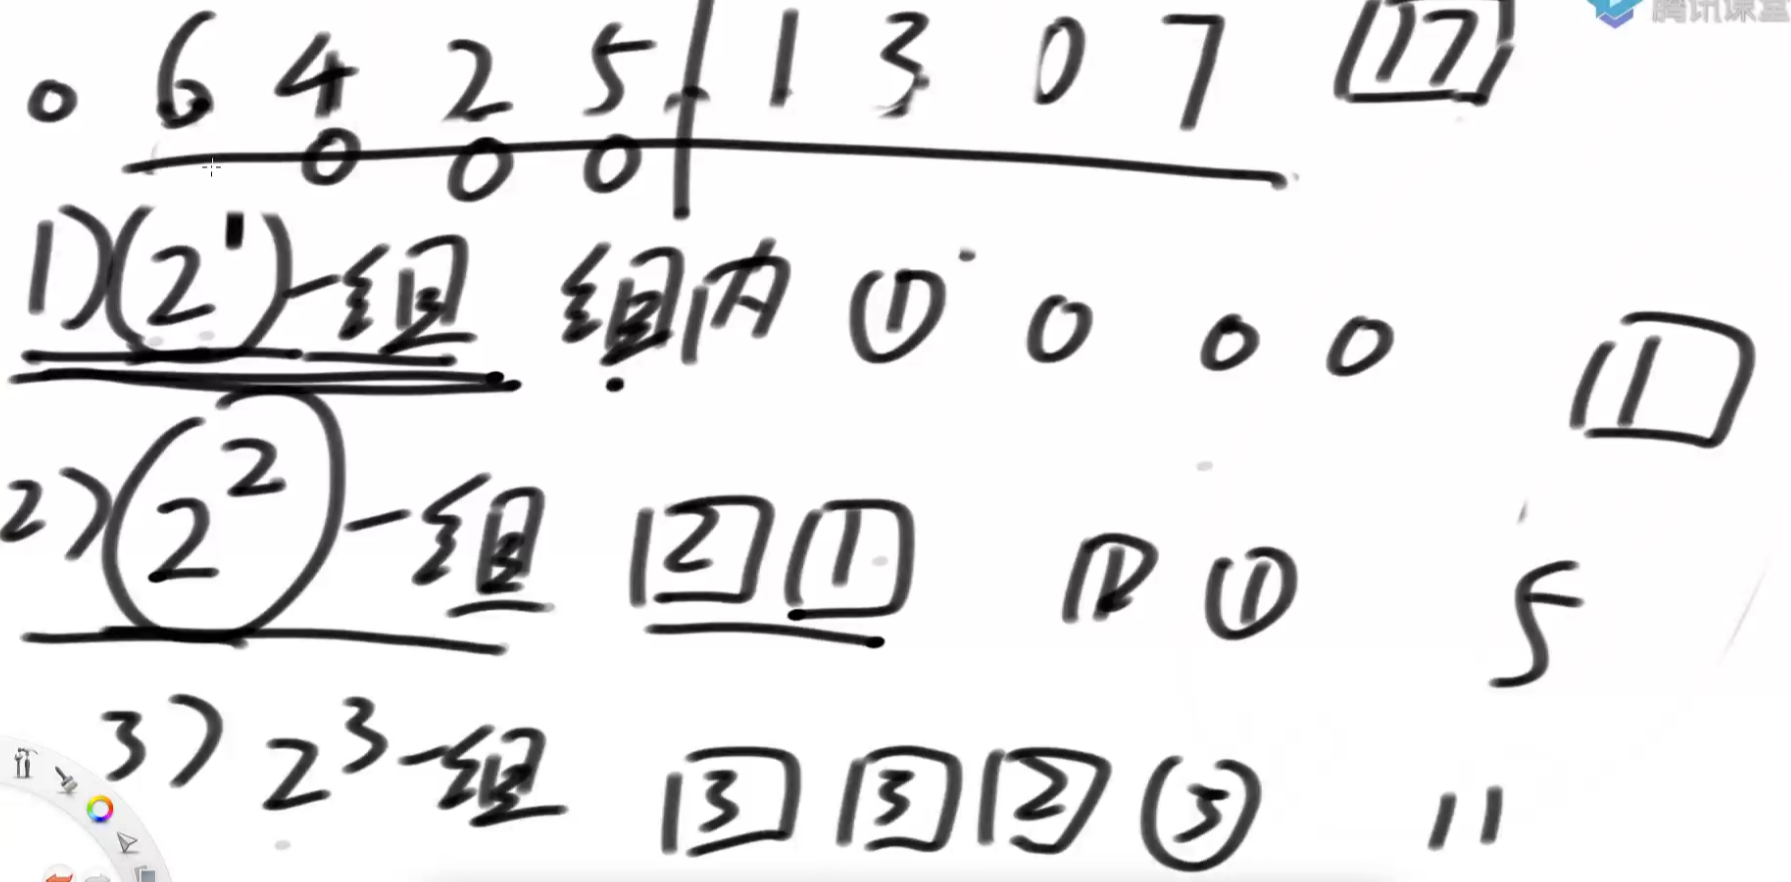 腾讯课堂
0 6 4 2 5 . 1 3 0 7 17
0 0 0
1) (2¹) 一组 组内 ① 0 0 0 1
2) 2² 一组 2 1 ① 5
3) 2³ 一组 3 3 2 ③ 11